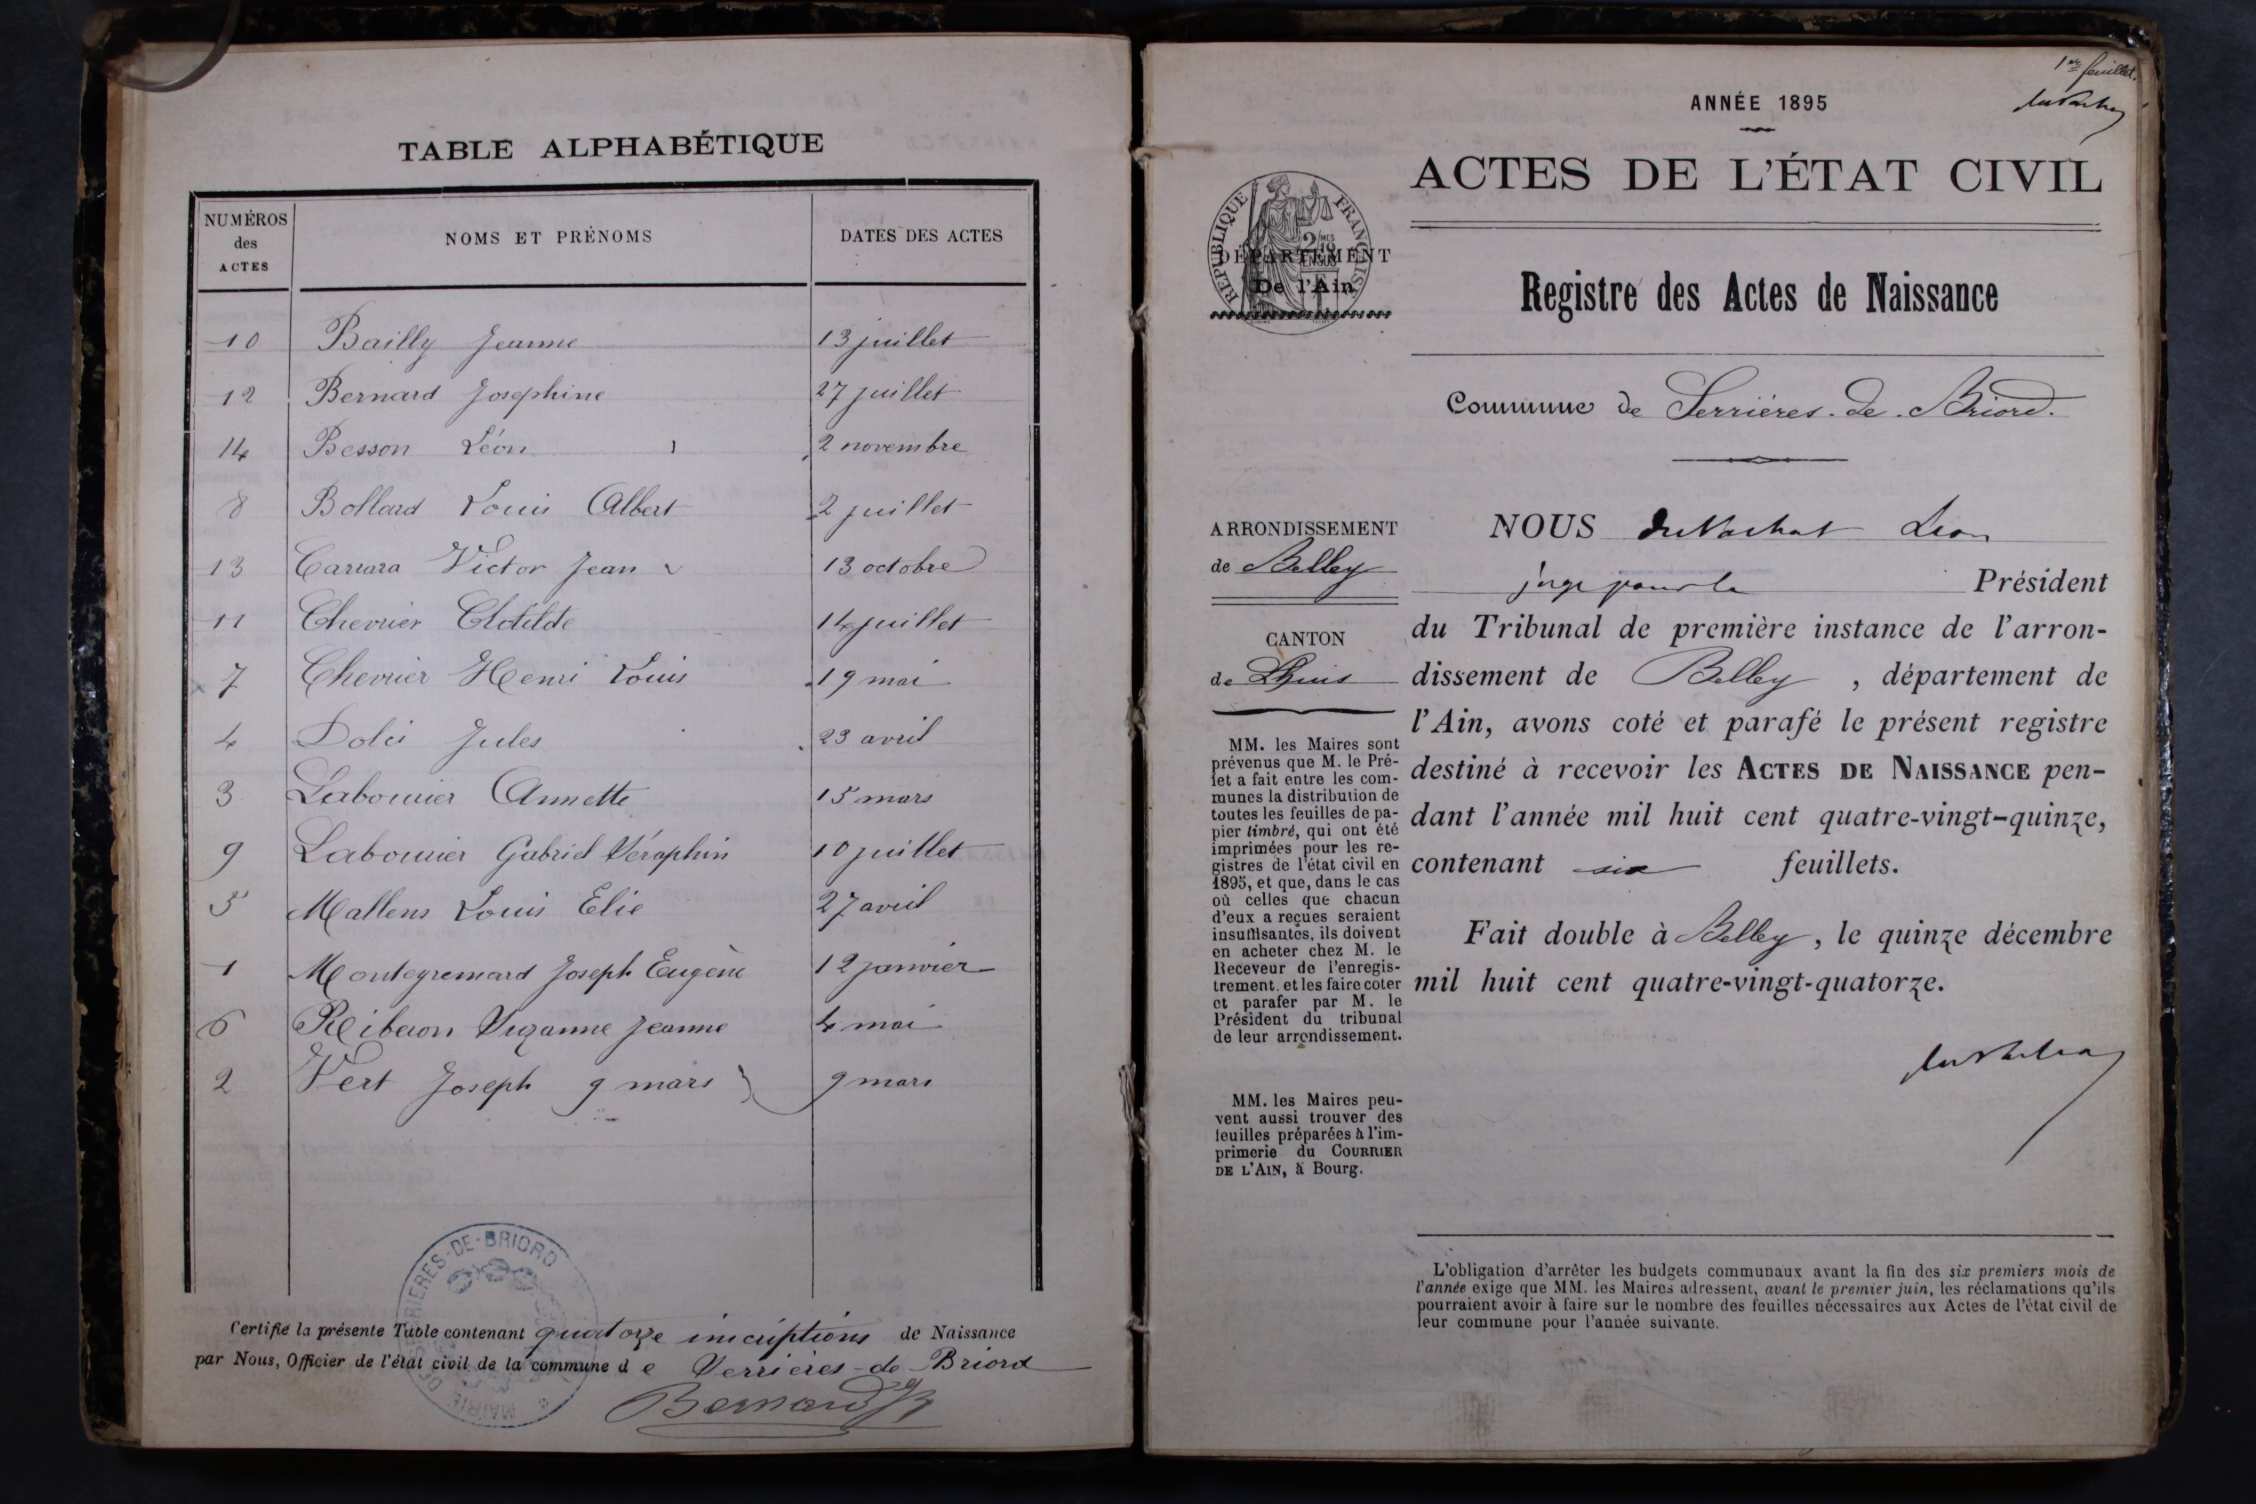 TABLE ALPHABÉTIQUE
NUMÉROS des ACTES NOMS ET PRÉNOMS DATES DES ACTES
10 Bailly Jeanne 13 juillet
12 Bernard Josephine 27 juillet
14 Besson Léon 2 novembre
8 Bollard Louis Albert 2 juillet
13 Carrara Victor Jean 13 octobre
11 Chevrier Clotilde 14 juillet
7 Chevrier Henri Louis 19 mai
4 Dolci Jules 23 avril
3 Labouvier Annette 15 mars
9 Labouvier Gabriel Séraphin 10 juillet
5 Mallens Louis Elie 27 avril
1 Montegremard Joseph Eugène 12 janvier
6 Riberon Suzanne Jeanne 4 mai
2 Vert Joseph 9 mars 9 mars
MAIRIE DE SERRIERES-DE-BRIORD
Certifié la présente Table contenant quatorze inscriptions de Naissance
par Nous, Officier de l'état civil de la commune de Serrières-de-Briord
Bernard
1er feuillet.
ANNÉE 1895
ACTES DE L'ÉTAT CIVIL
RÉPUBLIQUE FRANÇAISE
DÉPARTEMENT
De l'Ain
Registre des Actes de Naissance
Commune de Serrières-de-Briord.
ARRONDISSEMENT
de Belley
CANTON
de Lhuis
MM. les Maires sont
prévenus que M. le Pré-
fet a fait entre les com-
munes la distribution de
toutes les feuilles de pa-
pier timbré, qui ont été
imprimées pour les re-
gistres de l'état civil en
1895, et que, dans le cas
où celles que chacun
d'eux a reçues seraient
insuffisantes, ils doivent
en acheter chez M. le
Receveur de l'enregis-
trement. et les faire coter
et parafer par M. le
Président du tribunal
de leur arrondissement.
MM. les Maires peu-
vent aussi trouver des
feuilles préparées à l'im-
primerie du COURRIER
DE L'AIN, à Bourg.
NOUS Léon
juge pour le Président
du Tribunal de première instance de l'arron-
dissement de Belley, département de
l'Ain, avons coté et parafé le présent registre
destiné à recevoir les ACTES DE NAISSANCE pen-
dant l'année mil huit cent quatre-vingt-quinze,
contenant six feuillets.
Fait double à Belley, le quinze décembre
mil huit cent quatre-vingt-quatorze.
L'obligation d'arrêter les budgets communaux avant la fin des six premiers mois de
l'année exige que MM. les Maires adressent, avant le premier juin, les réclamations qu'ils
pourraient avoir à faire sur le nombre des feuilles nécessaires aux Actes de l'état civil de
leur commune pour l'année suivante.